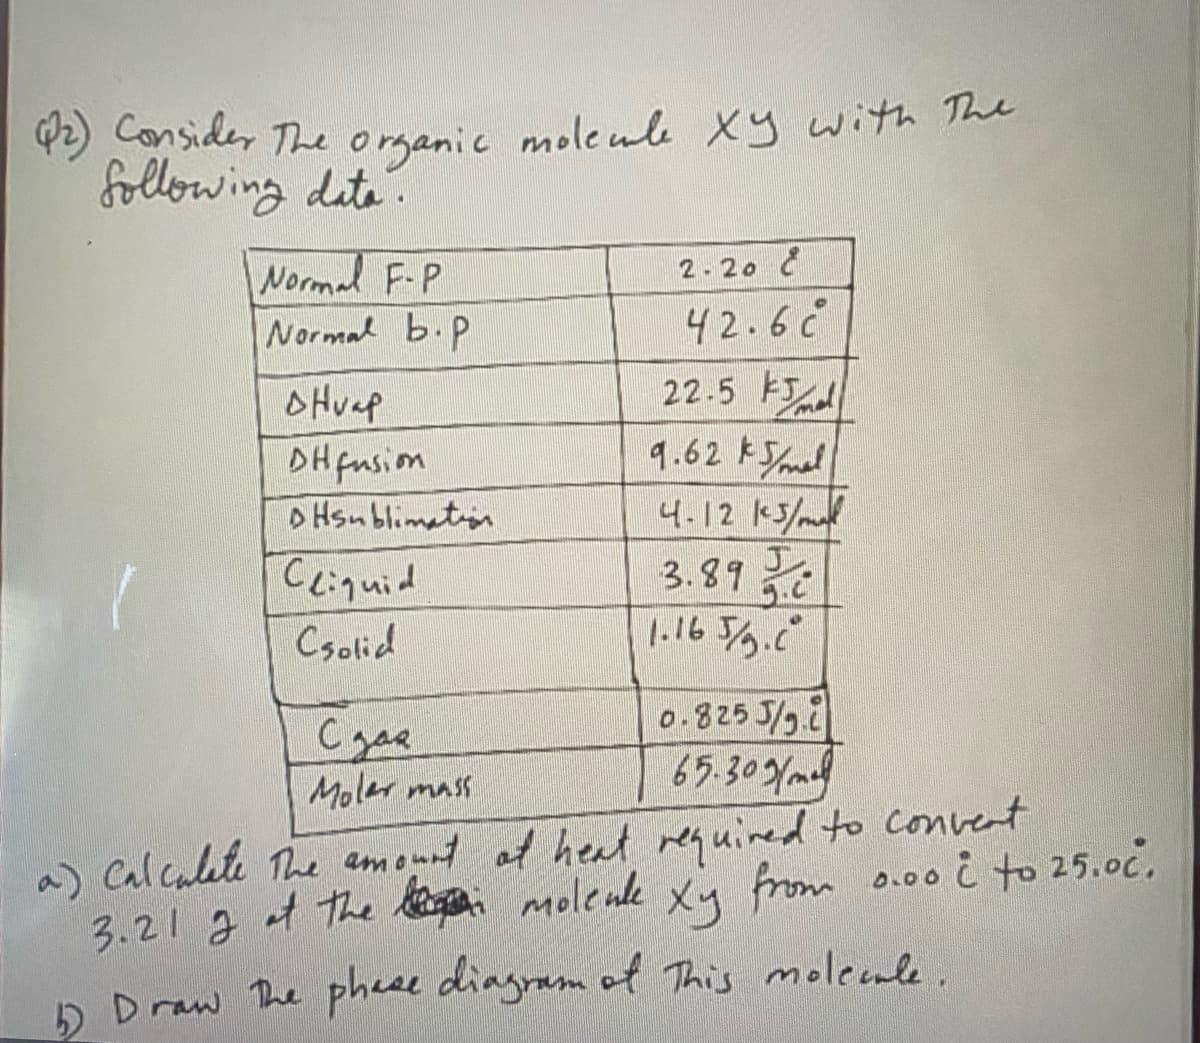 Q2) Consider The organic molecule xy with The
following data.
Normal F-P 2.20 C°
Normal b.p 42.6 C°
ΔHvap 22.5 kJ/mol
ΔHfusion 9.62 kJ/mol
ΔHsublimation 4.12 kJ/mol
Cliquid 3.89 J/g.C°
Csolid 1.16 J/g.C°
Cgas 0.825 J/g.C°
Molar mass 65.30 g/mol
a) Calculate The amount of heat required to convert
3.21 g of the molecule xy from 0.00 C° to 25.0C°.
b) Draw The phase diagram of This molecule.